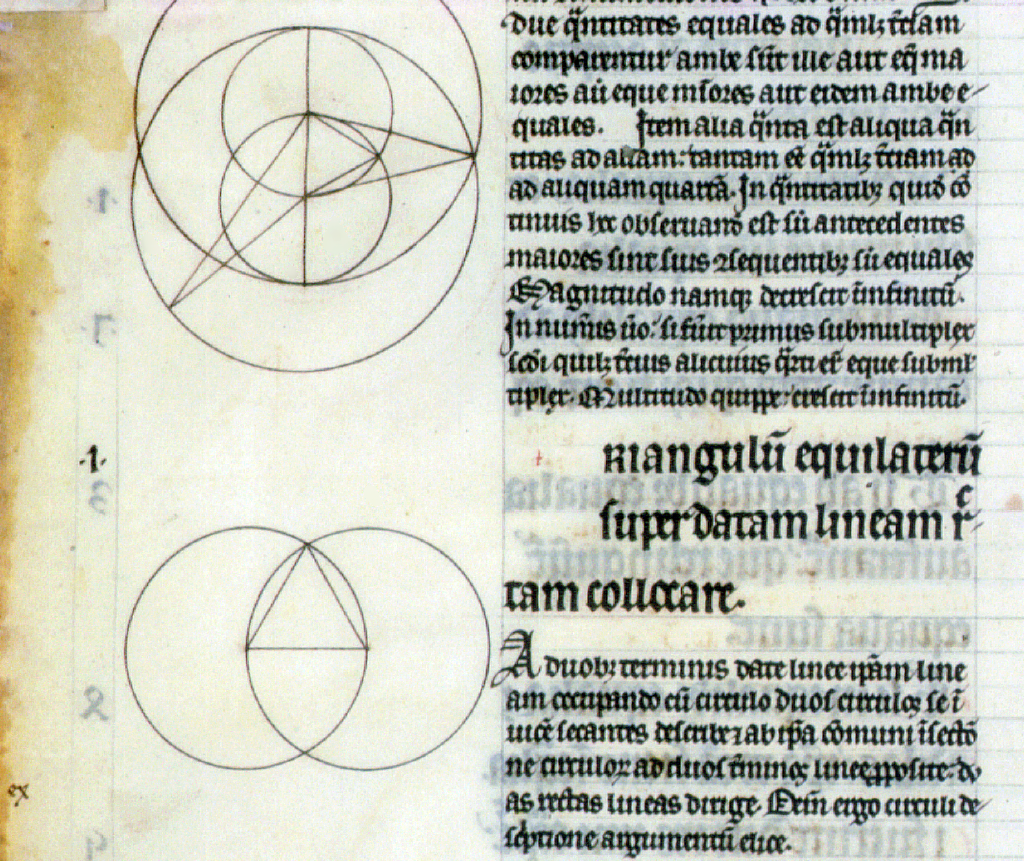 due q̃ntitates equales ad q̃mlꝫ t̃ciam
comparentur ambe sūt ille aut eq̃ ma
iores aū eque mīores aut eidem ambe e-
quales. Item alia q̃nta est aliqua q̃n
titas ad aliam: tantam eē q̃mlꝫ t̃ciam ad
ad aliquam quartā. In q̃ntitatibꝫ quid cō
tinuis hec obseruand est si antecedentes
maiores sint suis ɔsequentibꝫ uel equales
Magnitudo namqꝫ decrescit īinfinitū.
In num̃is ūo: si fūit primus submultiplex
scđi quilꝫ t̃cius alicuius q̃rti eē eque submł
tiplex. Multitudo quippe: crescit īinfinitū.
.1.
RIangulū equilaterū
super datam lineam rc̄-
tam collocare.
A duobꝫ terminis date linee ip̄am line
am occupando cū circulo duos circulos se ī
uicē secantes describe ⁊ ab ip̄a cōmuni īsectō
ne circuloꝝ ad duos t̃minos linee ꝓposite: du
as rectas lineas dirige. Dein ergo circuli de-
sc̄ptione argumentū elice.
ex